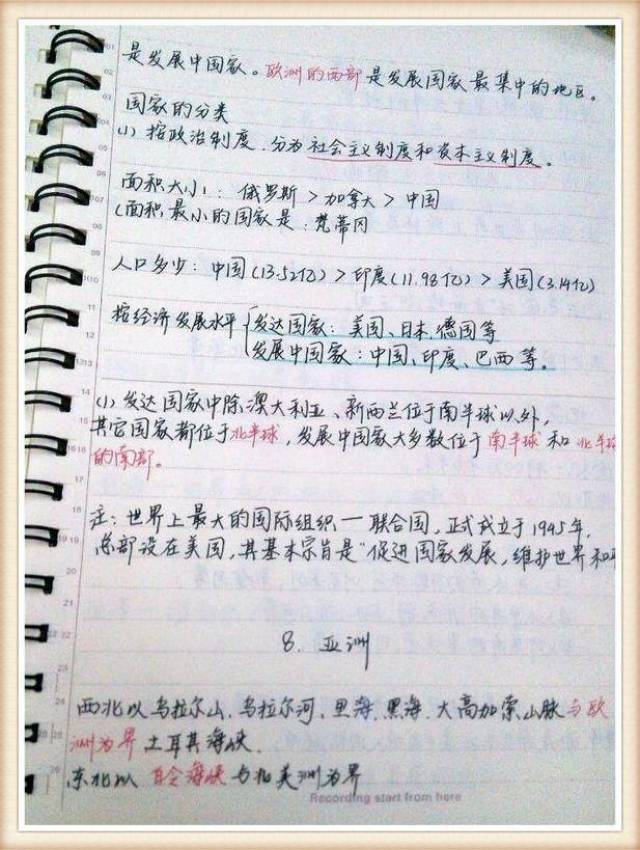 是发展中国家。欧洲的西部是发展国家最集中的地区。
国家的分类
(1) 按政治制度．分为社会主义制度和资本主义制度。
面积大小：俄罗斯 > 加拿大 > 中国
(面积最小的国家是：梵蒂冈
人口多少：中国(13.52亿) > 印度(11.98亿) > 美国(3.14亿)
按经济发展水平{发达国家：美国、日本、德国等
发展中国家：中国、印度、巴西等。
(1) 发达国家中除澳大利亚、新西兰位于南半球以外，
其它国家都位于北半球，发展中国家大多数位于南半球和北半球
的南部。
注：世界上最大的国际组织—联合国，正式成立于1945年，
总部设在美国，其基本宗旨是“促进国家发展，维护世界和平
8. 亚洲
西北以乌拉尔山、乌拉尔河、里海、黑海、大高加索山脉与欧
洲为界 土耳其海峡．
东北以 白令海峡与北美洲为界
Recording start from here